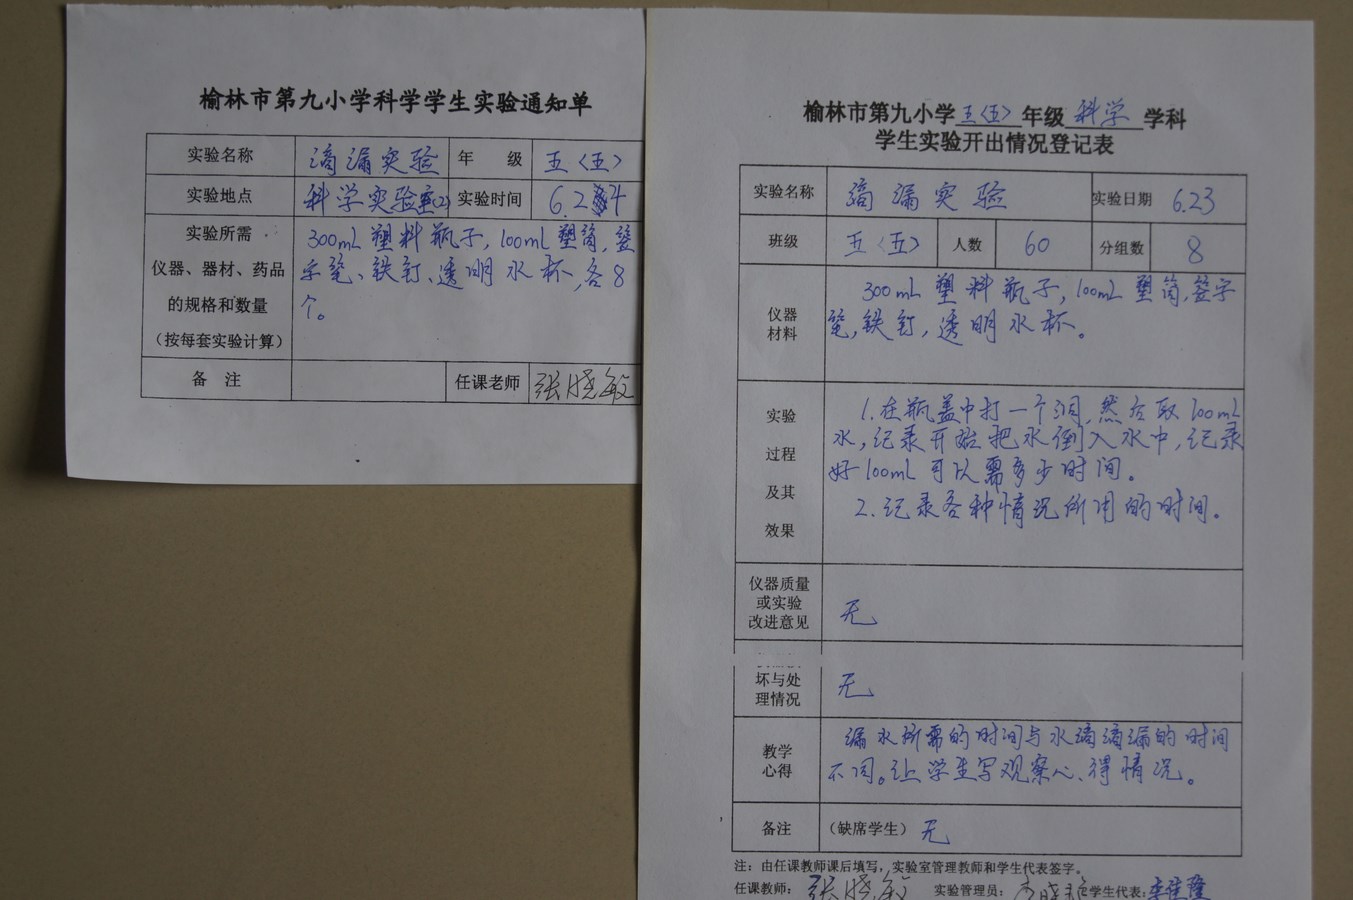 榆林市第九小学科学学生实验通知单
实验名称 滴漏实验 年 级 五〈五〉
实验地点 科学实验室(2) 实验时间 6.24
实验所需
仪器、器材、药品
的规格和数量
（按每套实验计算）
300mL塑料瓶子,100mL塑筒,签
字笔、铁钉、透明水杯,各8
个。
备 注 任课老师 张晓敏
榆林市第九小学五〈五〉年级科学学科
学生实验开出情况登记表
实验名称 滴漏实验 实验日期 6.23
班级 五〈五〉 人数 60 分组数 8
仪器
材料
300mL塑料瓶子,100mL塑筒,签字
笔,铁钉,透明水杯。
实验
过程
及其
效果
1.在瓶盖中打一个洞,然后取100mL
水,纪录开始把水倒入水中,纪录
好100mL可以需多少时间。
2.纪录各种情况所用的时间。
仪器质量
或实验
改进意见
无
坏与处
理情况
无
教学
心得
漏水所需的时间与水滴滴漏的时间
不同。让学生写观察心得情况。
备注 （缺席学生）无
注：由任课教师课后填写，实验室管理教师和学生代表签字。
任课教师：张晓敏 实验管理员： 学生代表：